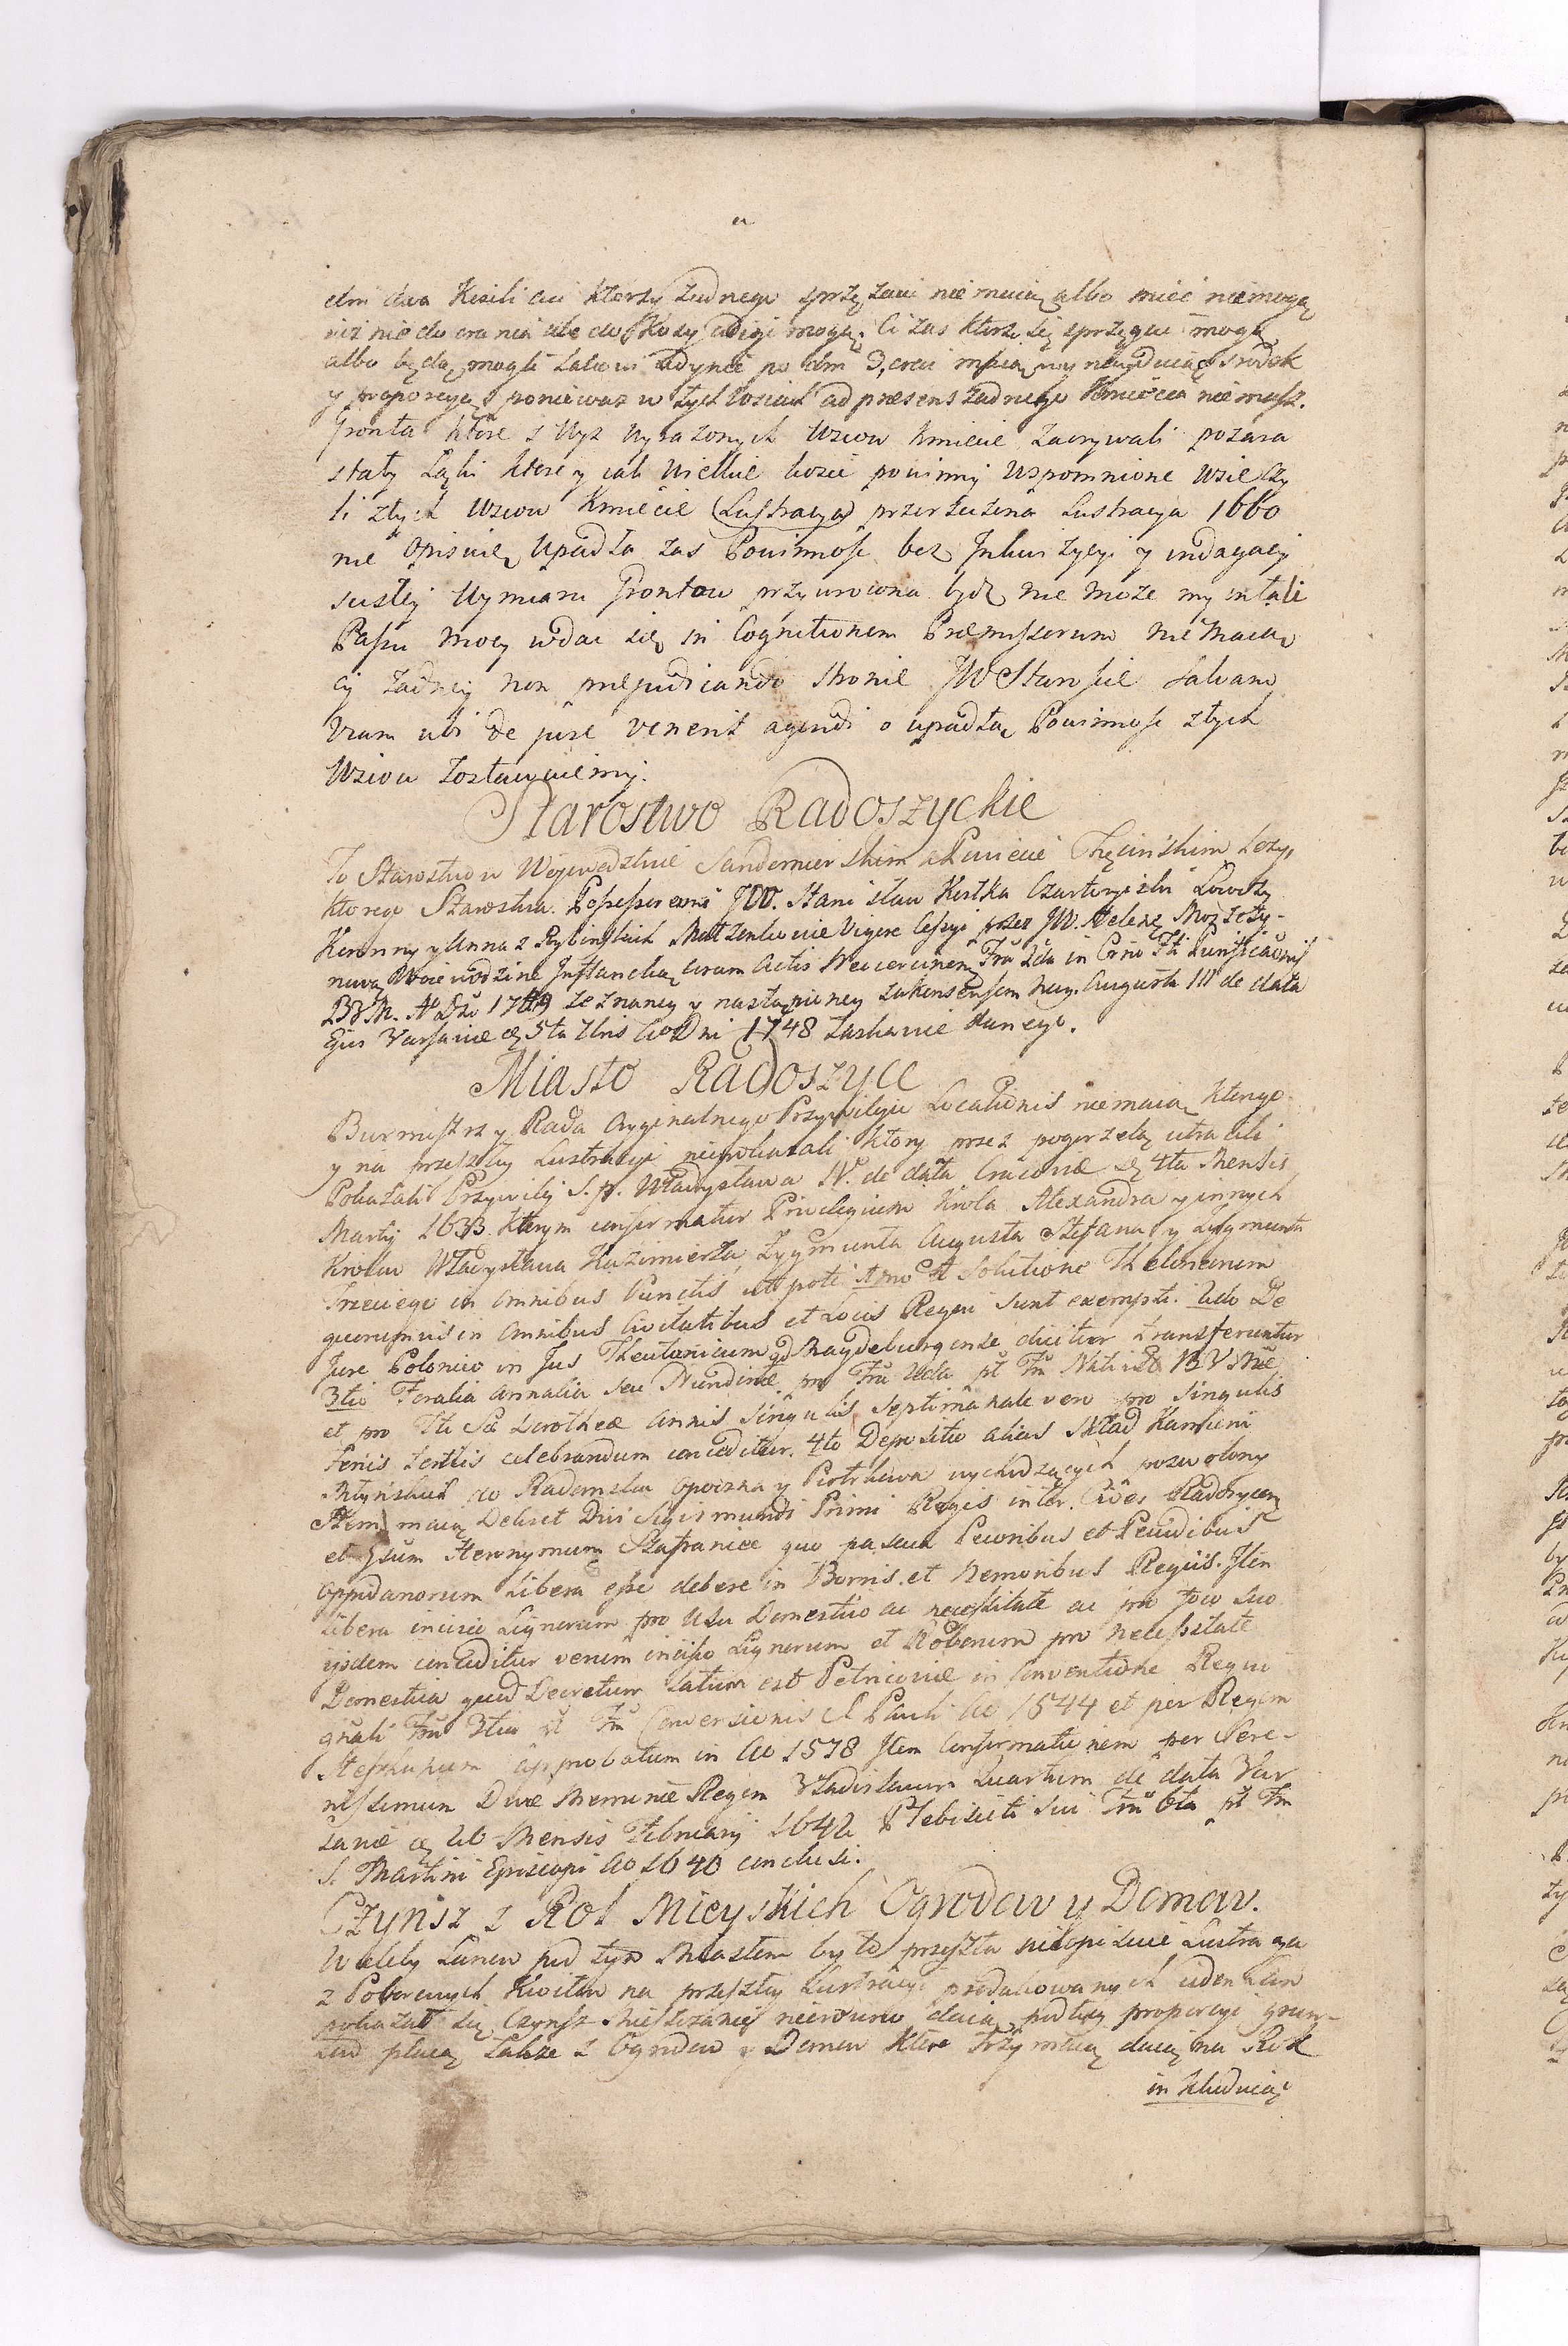 dni dwa Kosili ci ktorzy żadnego sprzężaiu nie maią albo mieć niemogą
niż nie do orania ale do Kosy adigi mogą. Ci zas ktorzy się sprzęgac mogą
albo będą mogli takowi iedynie po dni
y proporcyą poniewaz w tych wsiach ad præsens żadnego Kmiecia nie masz.
Gronta ktore z wyz wyrazonych wsiow Kmiecie zaorywali pozara
stały Łąki ktore y iak wielkie bozie powinny wspomnione wsie Czy
li z tych wsiow Kmiecie (Lustracya) przerzeczona Lustracya 1660
nie opisuie, Upadła zas Powinnosc bez Inkwizycyi y indagacyi
scisłey Wymiaru Grontow przywrocona bydz nie może my in tali
Passu mocy wdac się in Cognitionem Præmissorum nie maią
cy żadney non præjudicando stronie JW Staroscie salvam
viam ubi de jure venerit agendi o upadłą Powinnosc z tych
Wsiow zostawuiemy.
Starostwo Radoszyckie
To Starostwo w Wojewodztwie Sandomierskim a Powiecie Chęcinskim leży,
ktorego Starostwa Possessorami JWW. Stanisław Kostka Czartoryiski Łowczy
Koronny y Anna z Rybinskich Małzonkowie Vigore Cessyi przez JW. Helenę
nową Woiewodzinę Inflancką coram Actis
BVM. Ao Dni 1749 zeznaney y nastąpioney za konsensem Nay. Augusta III de data
Ejus Varsaviæ 5ta Xbris Ao Dni 1748 łaskawie danego.
Miasto Radoszyce
Burmistrz y Rada Oryginalnego Przywileju Locationis nie maią ktorego
y na przeszłey Lustracyi niepokazali ktory przez pogorzelą utracili
Pokazali Przywiley S. p. Władysława IV. de data Cracoviæ 4ta Mensis
Martij 1633 ktorym confirmatur Privilegium Krola Alexandra y innych
Krolow Władysława Kazimierza, Zygmunta Augusta Stefana y Zygmunta
Trzeciego in omnibus Punctis utpote 1mo A Solutione Theloneorum
quorumvis in omnibus Civitatibus et Locis Regni sunt exempti. 2do De
Jure Polonico in Jus Theutonicum qd Magdeburgense dicitur transferuntur
3tio Foralia annalia seu Nundinæ pro Fria 2da pt Fm Nativit BV Mæ
et pro Fto Sæ Dorotheæ annis singulis septimanale vero pro singulis
Feriis tertiis celebrandum conceditur. 4to Depositio alias Skład Kamieni
Młyńskich do Radomska Opoczna y Piotrkowa wychodzących pozwolony
Item maią Decret Divi Sigismundi Primi Regis inter Cives Radosycen
et Gsum Hieronymum Szafraniec quo pascua Pecoribus et Pecudibus
oppidanorum libera esse debere in Borris et Nemoribus Regiis. Item
libera incisio Lignorum pro Usu Domestico ac necessitate ac pro foco suo
ijsdem conceditur venum inciso Lignorum et Roborum pro necessitate
Domestica quod Decretum latum est Petricoviæ in Conventione Regni
gnali Fria 3tia pt Fm Conversionis S Pauli Ao 1544 et per Regem
Stephanum approbatum in Ao 1578 Item Confirmationem per Sere-
nissimum Divæ Memoriæ Regem Vladislaum Quartum de data Var
saviæ 20 Mensis February 1642 Plebisciti sui Fria 6ta pt Fm
S. Martini Episcopi Ao 1640 conclusi.
Czynsz z Rol Mieyskich Ogrodow y Domow.
Wieleby Łanow pod tym Miastem było przeszła nieopisuie Lustracya
z Poborowych Kwitow na przeszłey Lustracyi produkowanych
pokazał się Czynsz Mieszczanie nierowno daią podług proporcyi grun-
tow płacą także z Ogrodow y Domow ktore trzymaią daią na Rok
in kluduiąc